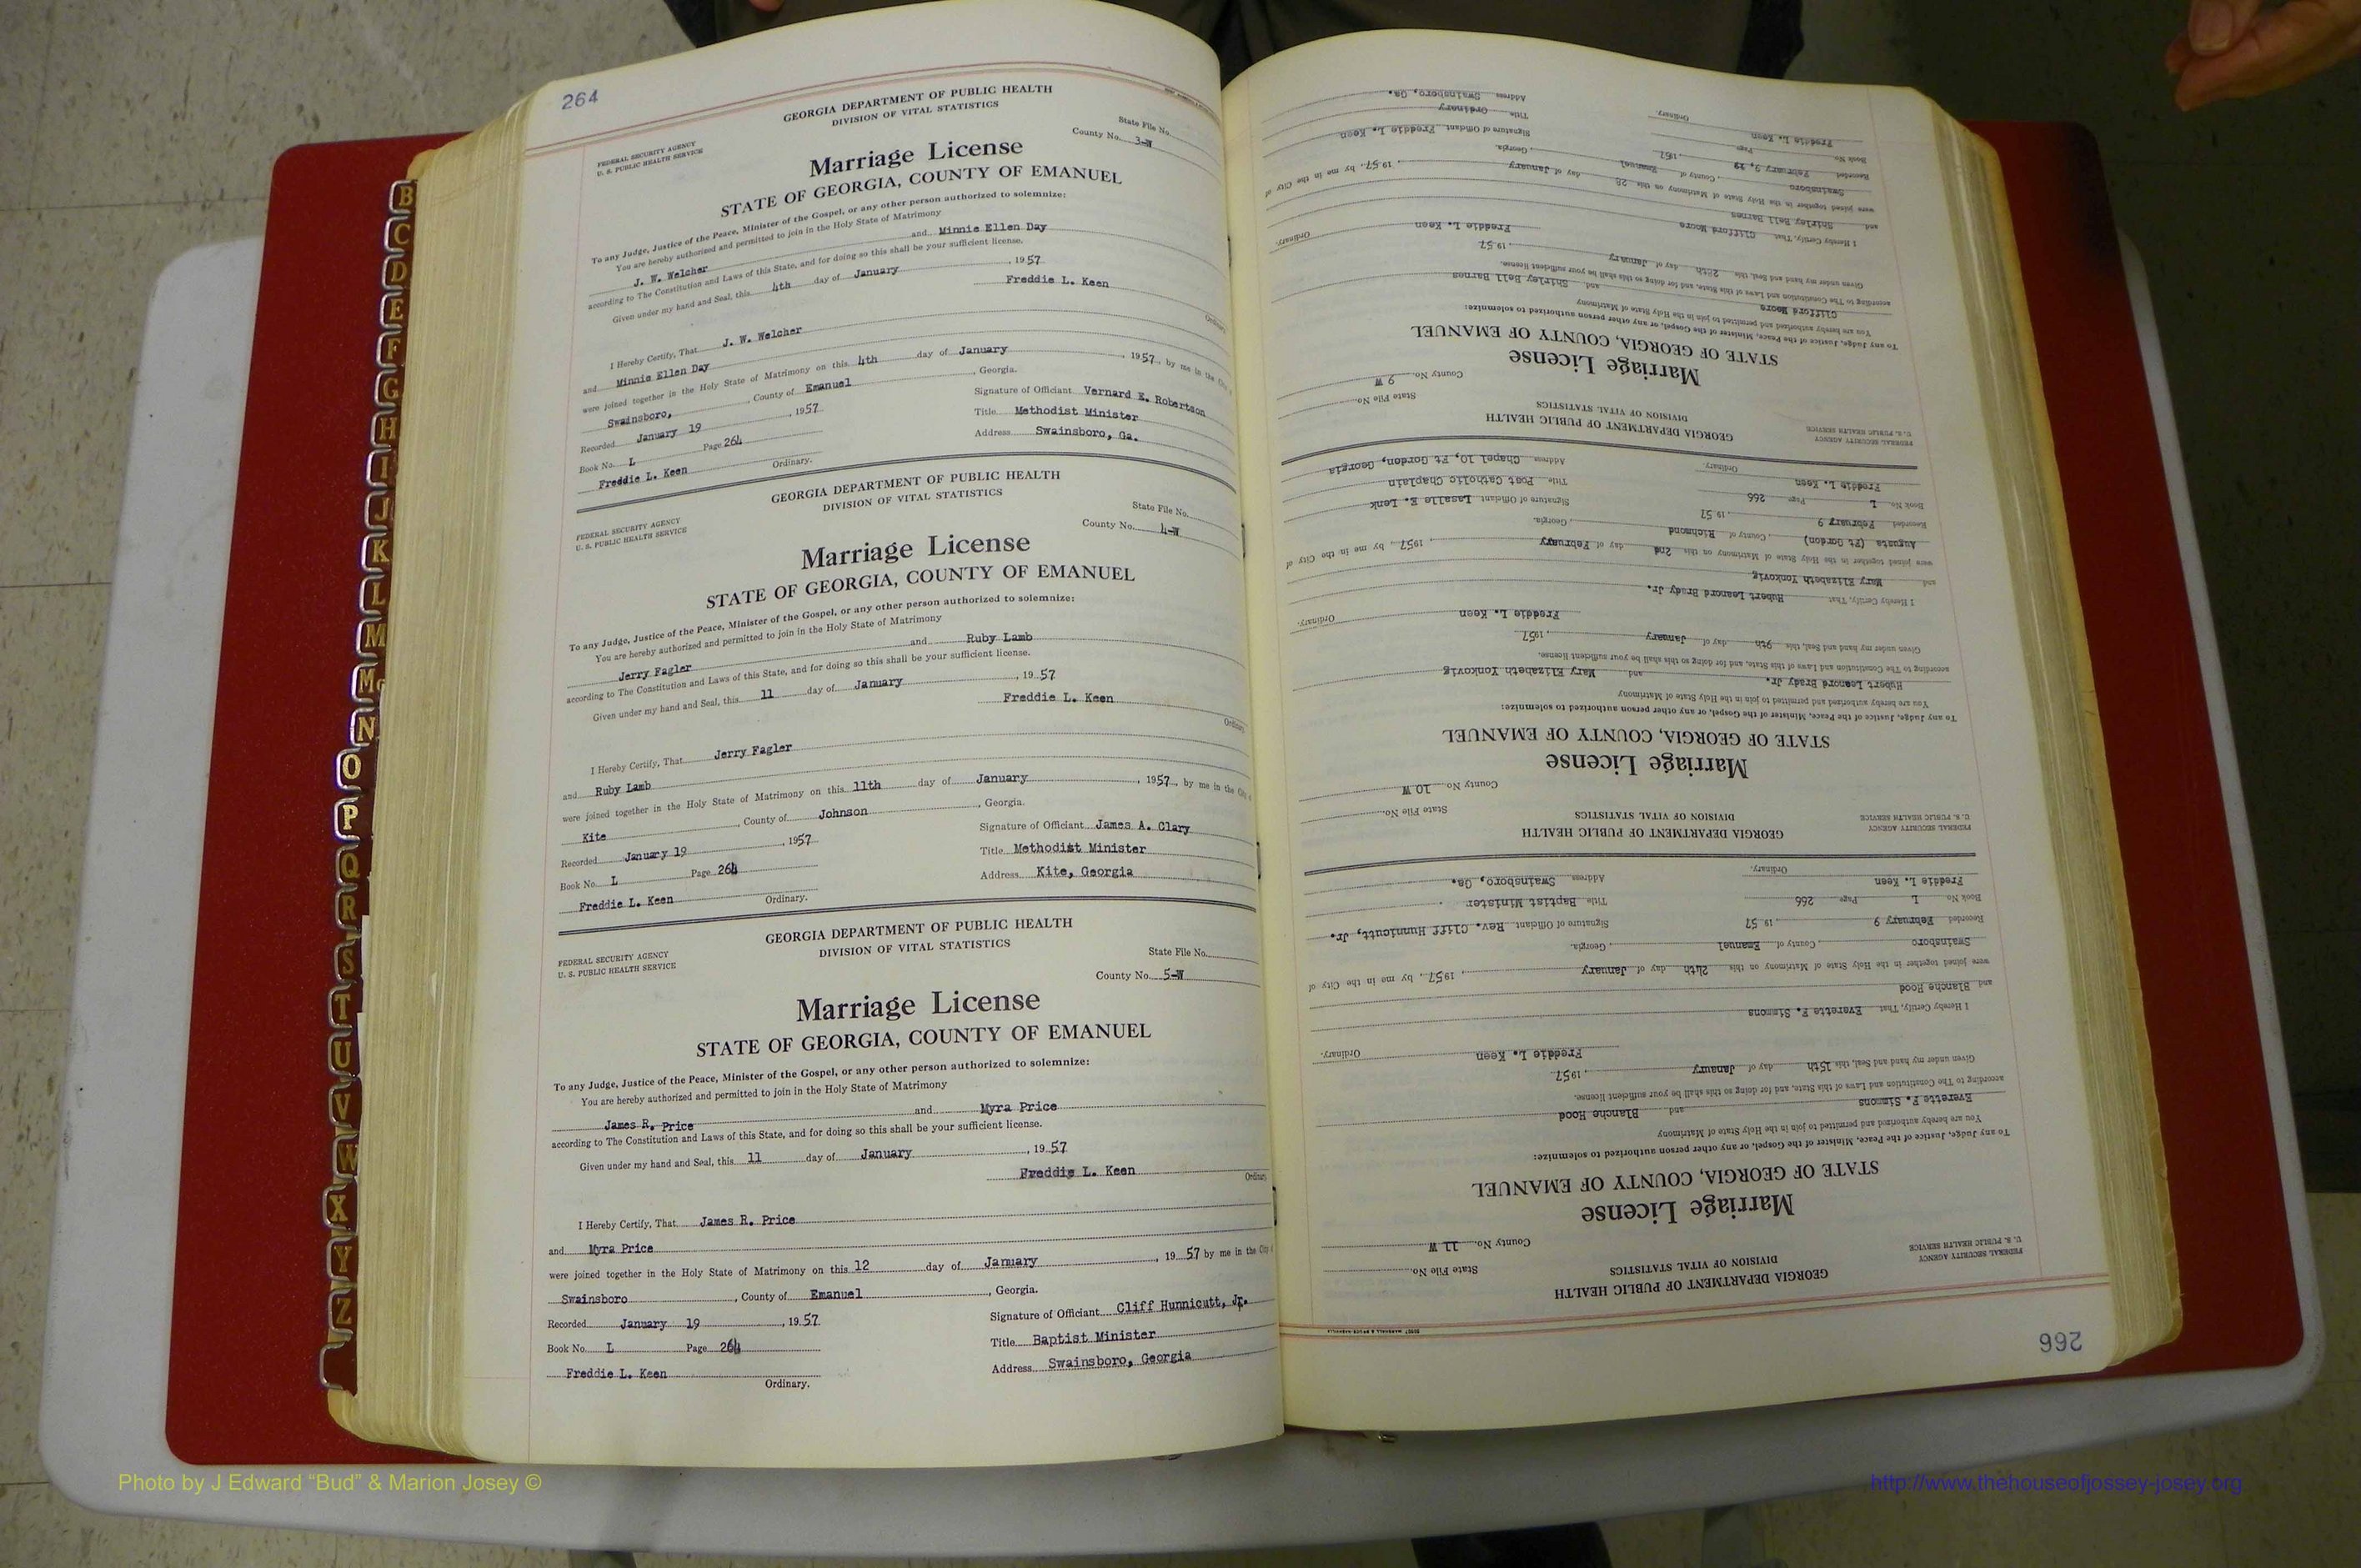 264
GEORGIA DEPARTMENT OF PUBLIC HEALTH
DIVISION OF VITAL STATISTICS
FEDERAL SECURITY AGENCY
U. S. PUBLIC HEALTH SERVICE
State File No.
County No. 3-W
Marriage License
STATE OF GEORGIA, COUNTY OF EMANUEL
To any Judge, Justice of the Peace, Minister of the Gospel, or any other person authorized to solemnize:
You are hereby authorized and permitted to join in the Holy State of Matrimony
J. W. Welcher and Minnie Ellen Day
according to The Constitution and Laws of this State, and for doing so this shall be your sufficient license.
Given under my hand and Seal, this 4th day of January, 1957
Freddie L. Keen
Ordinary
I Hereby Certify, That J. W. Welcher
and Minnie Ellen Day
were joined together in the Holy State of Matrimony on this 4th day of January, 1957, by me in the City of
Swainsboro, County of Emanuel, Georgia.
Recorded January 19, 1957
Book No. L Page 264
Freddie L. Keen Ordinary.
Signature of Officiant Vernard E. Robertson
Title Methodist Minister
Address Swainsboro, Ga.
GEORGIA DEPARTMENT OF PUBLIC HEALTH
DIVISION OF VITAL STATISTICS
FEDERAL SECURITY AGENCY
U. S. PUBLIC HEALTH SERVICE
State File No.
County No. 4-W
Marriage License
STATE OF GEORGIA, COUNTY OF EMANUEL
To any Judge, Justice of the Peace, Minister of the Gospel, or any other person authorized to solemnize:
You are hereby authorized and permitted to join in the Holy State of Matrimony
Jerry Fagler and Ruby Lamb
according to The Constitution and Laws of this State, and for doing so this shall be your sufficient license.
Given under my hand and Seal, this 11 day of January, 1957
Freddie L. Keen
Ordinary
I Hereby Certify, That Jerry Fagler
and Ruby Lamb
were joined together in the Holy State of Matrimony on this 11th day of January, 1957, by me in the City of
Kite, County of Johnson, Georgia.
Recorded January 19, 1957
Book No. L Page 264
Freddie L. Keen Ordinary.
Signature of Officiant James A. Clary
Title Methodist Minister
Address Kite, Georgia
GEORGIA DEPARTMENT OF PUBLIC HEALTH
DIVISION OF VITAL STATISTICS
FEDERAL SECURITY AGENCY
U. S. PUBLIC HEALTH SERVICE
State File No.
County No. 5-W
Marriage License
STATE OF GEORGIA, COUNTY OF EMANUEL
To any Judge, Justice of the Peace, Minister of the Gospel, or any other person authorized to solemnize:
You are hereby authorized and permitted to join in the Holy State of Matrimony
James R. Price and Myra Price
according to The Constitution and Laws of this State, and for doing so this shall be your sufficient license.
Given under my hand and Seal, this 11 day of January, 1957
Freddie L. Keen
Ordinary
I Hereby Certify, That James R. Price
and Myra Price
were joined together in the Holy State of Matrimony on this 12 day of January, 1957 by me in the City of
Swainsboro, County of Emanuel, Georgia.
Recorded January 19, 1957
Book No. L Page 264
Freddie L. Keen
Ordinary.
Signature of Officiant Cliff Hunnicutt, Jr.
Title Baptist Minister
Address Swainsboro, Georgia
266
GEORGIA DEPARTMENT OF PUBLIC HEALTH
DIVISION OF VITAL STATISTICS
FEDERAL SECURITY AGENCY
U. S. PUBLIC HEALTH SERVICE
State File No.
County No. 11 W
Marriage License
STATE OF GEORGIA, COUNTY OF EMANUEL
To any Judge, Justice of the Peace, Minister of the Gospel, or any other person authorized to solemnize:
You are hereby authorized and permitted to join in the Holy State of Matrimony
Everette F. Simons and Blanche Hood
according to The Constitution and Laws of this State, and for doing so this shall be your sufficient license.
Given under my hand and Seal, this 15th day of Janaury, 1957
Freddie L. Keen Ordinary.
I Hereby Certify, That Everette F. Simons
and Blanche Hood
were joined together in the Holy State of Matrimony on this 24th day of January, 1957, by me in the City of
Swainsboro, County of Emanuel, Georgia.
Recorded February 9, 1957
Book No. L Page 266
Freddie L. Keen
Ordinary.
Signature of Officiant Rev. Cliff Hunnicutt, Jr.
Title Baptist Minister
Address Swainsboro, Ga.
GEORGIA DEPARTMENT OF PUBLIC HEALTH
DIVISION OF VITAL STATISTICS
FEDERAL SECURITY AGENCY
U. S. PUBLIC HEALTH SERVICE
State File No.
County No. 10 W
Marriage License
STATE OF GEORGIA, COUNTY OF EMANUEL
To any Judge, Justice of the Peace, Minister of the Gospel, or any other person authorized to solemnize:
You are hereby authorized and permitted to join in the Holy State of Matrimony
Hubert Leanord Brady Jr. and Mary Elizabeth Yonkovig
according to The Constitution and Laws of this State, and for doing so this shall be your sufficient license.
Given under my hand and Seal, this 9th day of January, 1957
Freddie L. Keen Ordinary
I Hereby Certify, That Hubert Leanord Brady Jr.
and Mary Elizabeth Yonkovig
were joined together in the Holy State of Matrimony on this 2nd day of February, 1957, by me in the City of
Augusta (Ft Gordon), County of Richmond, Georgia.
Recorded February 9, 1957
Book No. L Page 266
Freddie L. Keen
Ordinary
Signature of Officiant Lasalle E. Lenk
Title Post Catholic Chaplain
Address Chapel 10, Ft Gordon, Georgia
GEORGIA DEPARTMENT OF PUBLIC HEALTH
DIVISION OF VITAL STATISTICS
FEDERAL SECURITY AGENCY
U. S. PUBLIC HEALTH SERVICE
State File No.
County No. 9 W
Marriage License
STATE OF GEORGIA, COUNTY OF EMANUEL
To any Judge, Justice of the Peace, Minister of the Gospel, or any other person authorized to solemnize:
You are hereby authorized and permitted to join in the Holy State of Matrimony
Clifford Moore and Shirley Bell Barnes
according to The Constitution and Laws of this State, and for doing so this shall be your sufficient license.
Given under my hand and Seal, this 28th day of January, 1957
Freddie L. Keen Ordinary.
I Hereby Certify, That Clifford Moore
and Shirley Bell Barnes
were joined together in the Holy State of Matrimony on this 28 day of January, 1957, by me in the City of
Swainsboro, County of Emanuel, Georgia.
Recorded February 9, 19, 1957
Book No. Page
Freddie L. Keen
Ordinary.
Signature of Officiant Freddie L. Keen
Title Ordinary
Address Swainsboro, Ga.
B
C
D
E
F
G
H
I
J
K
L
M
Mc
N
O
P
Q
R
S
T
U
V
W
X
Y
Z
Photo by J Edward “Bud” & Marion Josey ©
http://www.thehouseofjossey-josey.org